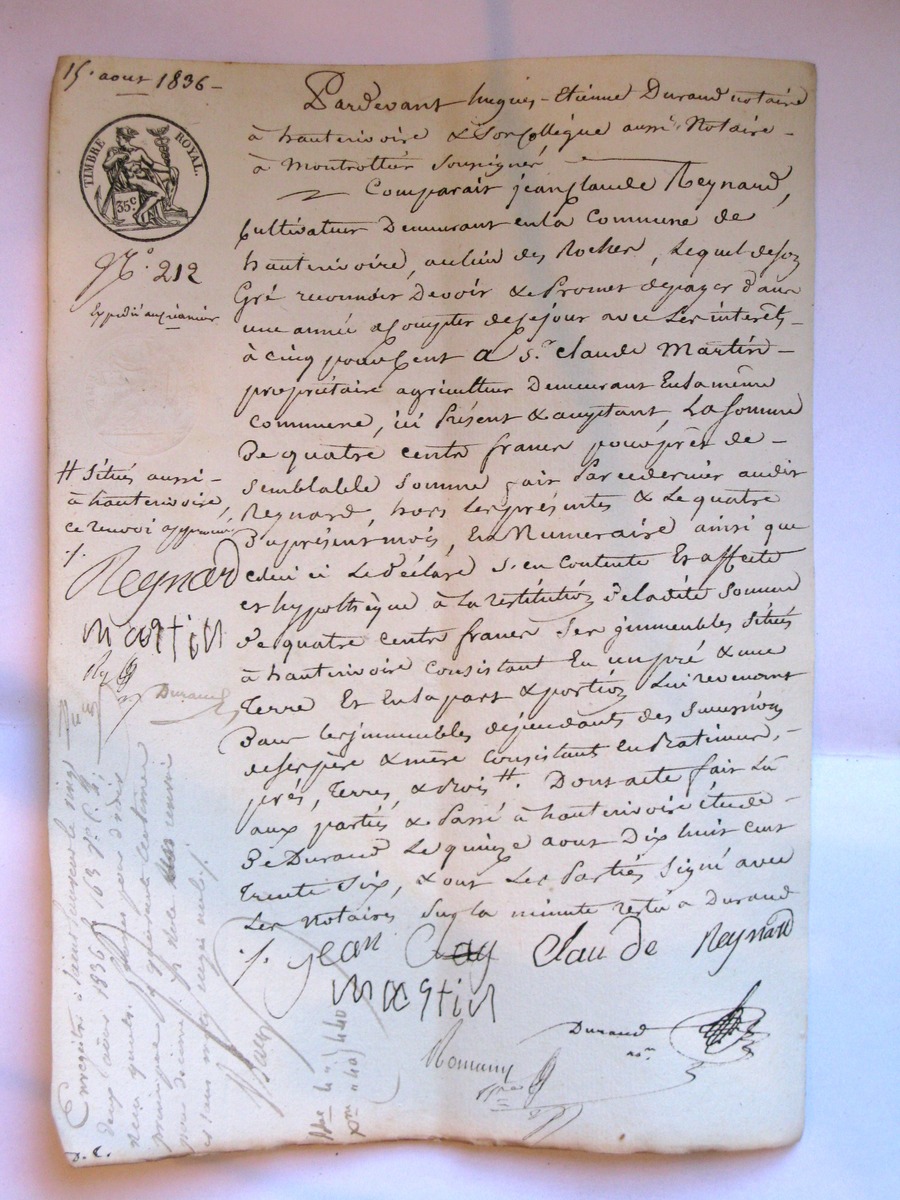 15. aout 1836 -
TIMBRE ROYAL.
35c
No. 212
Expédié au créancier
Pardevant hugues - Etienne Durand notaire
à hauterivoire & Son Collègue aussi Notaire -
à Montrottier soussignés -
Comparait jean Claude Reynard,
Cultivateur Demeurant en la Commune de
hauterivoire, au lieu des Rocher, Lequel de son
Gré reconnoit Devoir & Promet de payer d'ans
une année à Compter de ce jour avec Les intérêts -
à cinq pour Cent A Sr. Claude Martin -
propriétaire agriculteur Demeurant En la même
Commune, ici Présent & acceptant, La Somme
De quatre cents francs pour prêt de -
semblable somme fait Par ce dernier audit
Reynard, hors Les présentes & Le quatre
Du présent mois, En Numeraire ainsi que
celui ci Le déclare S'en Contente Et affecte
et hypothèque à La restitution de la dite Somme
de quatre cents francs Ses immeubles Situés
à hauterivoire Consistant En un pré & une
Terre Et En sa part & portion Lui revenant
Dans Les immeubles dépendants des Successions
de ses père & mère Consistant En Batiments, -
prés, Terres & Bois #. Dont acte fait Lu
aux parties & Passé à hauterivoire étude -
De Durand Le quinze aout Dix huit cent
Trente Six, & ont Les Parties Signé avec
Les Notaires Sur La minute restée à Durand
# Situés aussi -
à hauterivoire,
ce renvoi approuvé
./.
Reynard
martin
Durand
./. jean Clau Claude Reynard
martin
Durand
nore
Romany
Enregistré à Saint Laurent le vingt
deux août 1836 fo 163
D. C.